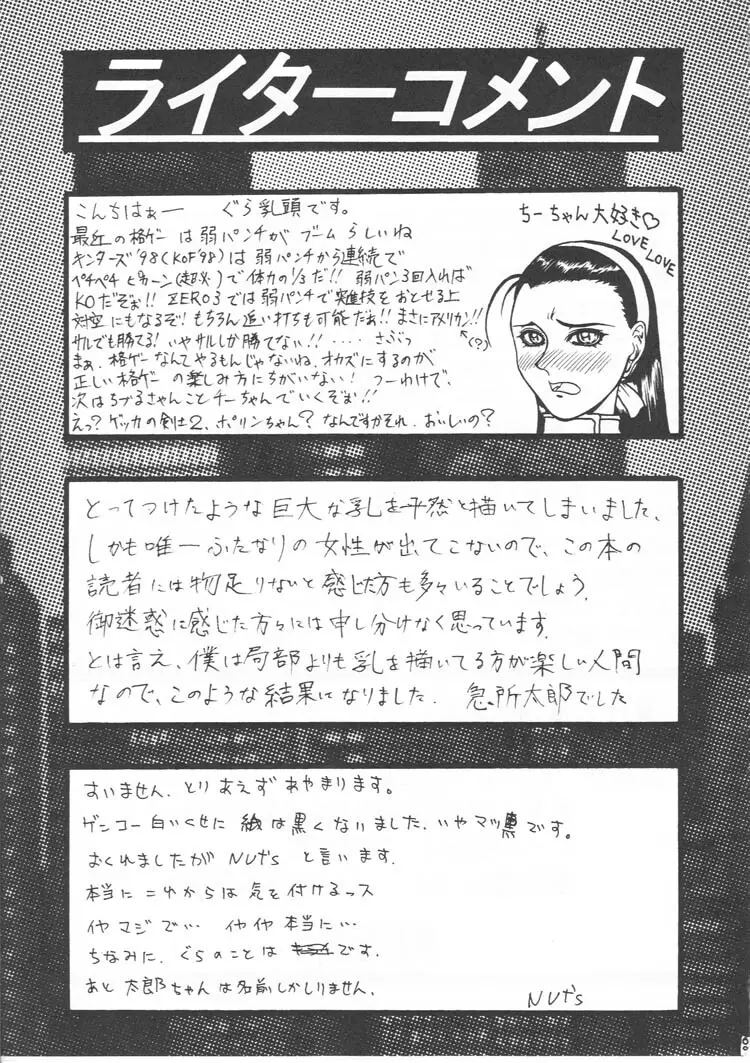 ライターコメント
こんちはぁー ぐら乳頭です。
最近の格ゲーは弱パンチがブームらしいね
キンターズ'98(KOF'98)は弱パンチから連続で
ペチペチ ピキーン(超必)で体力の1/3だ!! 弱パン3回入れば
KOだぞぉ!! ZERO3では弱パンチで雑技をおとせる上
対空にもなるぞ!もちろん追い打ちも可能だぁ!!まさにアメリカン!!
サルでも勝てる!いやサルしか勝てない!!････さぶっ
(?)
まぁ、格ゲーなんてやるもんじゃないね、オカズにするのが
正しい格ゲーの楽しみ方にちがいない! つーわけで、
次はちづるさんことチーちゃんでいくぞぉ!!
えっ?ゲッカの剣士2、ポリンちゃん?なんですかそれ、おいしいの?
ちーちゃん大好き♡
LOVE LOVE
とってつけたような巨大な乳を平然と描いてしまいました、
しかも唯一ふたなりの女性が出てこないので、この本の
読者には物足りないと感じた方も多々いることでしょう。
御迷惑に感じた方々には申し分けなく思っています。
とは言え、僕は局部よりも乳を描いてる方が楽しい人間
なので、このような結果になりました. 急所太郎でした
すいません、とりあえずあやまります。
ゲンコー白いくせに紙は黒くないました、いやマッ黒です。
おくれましたが NUtsと言います.
本当にこれからは気を付けるっス
イヤマジで… イヤイヤ本当に…
ちなみに、ぐらのことは です.
あと太郎ちゃんは名前しかしりません、
NUts